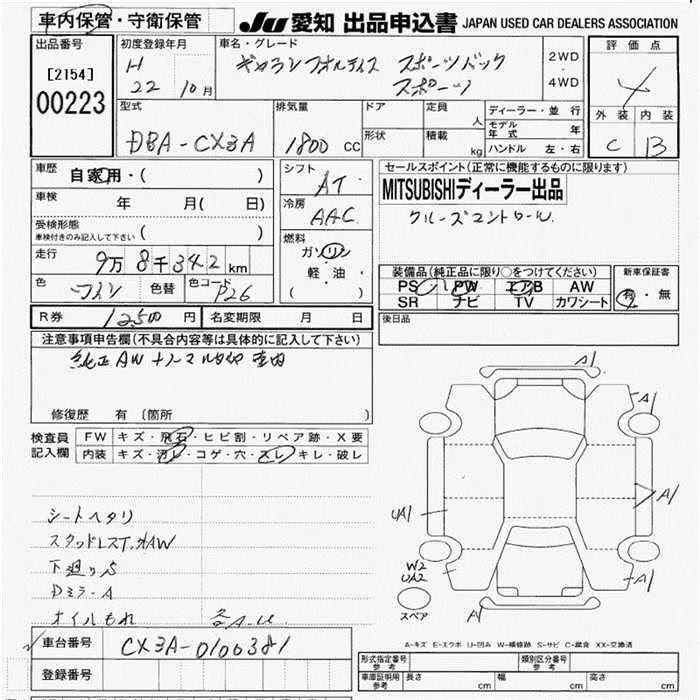 車内保管・守衛保管
JU 愛知 出品申込書 JAPAN USED CAR DEALERS ASSOCIATION
出品番号
[2154]
00223
初度登録年月
H
22 10月
車名・グレード
ギャランフォルティス スポーツバック
スポーツ
2WD
・
4WD
評価点
4
外装 内装
C B
型式
DBA-CX3A
排気量
1800 cc
ドア
形状
定員
人
積載
kg
ディーラー・並行
モデル年式 年
ハンドル 左・右
車歴
自家用・( )
車検
年 月( 日)
受検形態
車検付きのみ記入して下さい ( )
走行
9万8千342km
色
ワイン
色替
色コード
P26
シフト
AT
冷房
AAC
燃料
ガソリン
軽油
( )
セールスポイント(正常に機能するものに限ります)
MITSUBISHIディーラー出品
クルーズコントロール
装備品(純正品に限り○をつけてください)
PS PW エアB AW
SR ナビ TV カワシート
新車保証書
有・無
R券 12500円
名変期限 月 日
後日品
注意事項申告欄(不具合内容等は具体的に記入して下さい)
純正AW+ノーマルタイヤ車内
修復歴 有 〔箇所
検査員
記入欄
FW キズ・飛石・ヒビ割・リペア跡・X要
内装 キズ・汚レ・コゲ・穴・スレ・キレ・破レ
シートヘタリ
スタッドレスT,オAW
下廻りS
Dミラ-A
オイルもれ 各A-U
A1
A1
A1
UA1
W2
UA2
A1
A1
スペア
A-キズ E-エクボ U-凹み W-補修跡 S-サビ C-腐食 XX-交換済
車台番号
CX3A-0100381
登録番号
形式指定番号
参考
類別区分番号
参考
車庫証明用
参考
長さ cm 幅 cm 高さ cm